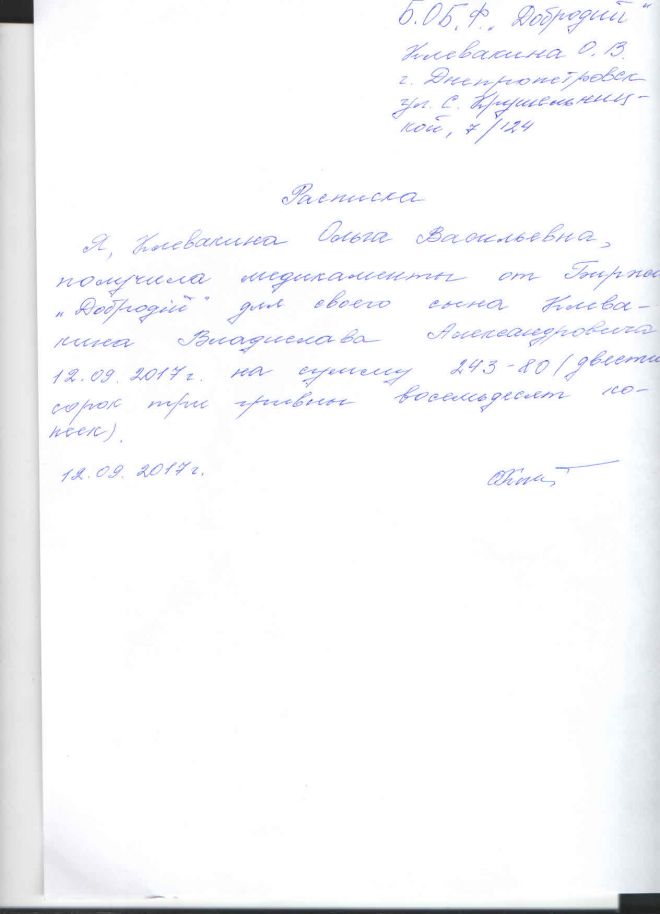 Б.ОБ.Ф. „Добродий"
Клевакина О.В.
г. Днепропетровск
ул. С. Крушельниц-
кой, 7/124
Расписка
Я, Клевакина Ольга Васильевна,
получила медикаменты от Биржи
„Добродій" для своего сына Клева-
кина Владислава Александровича
12.09.2017г. на сумму 243-80 (двести
сорок три гривны восемьдесят ко-
пеек).
12.09.2017г.